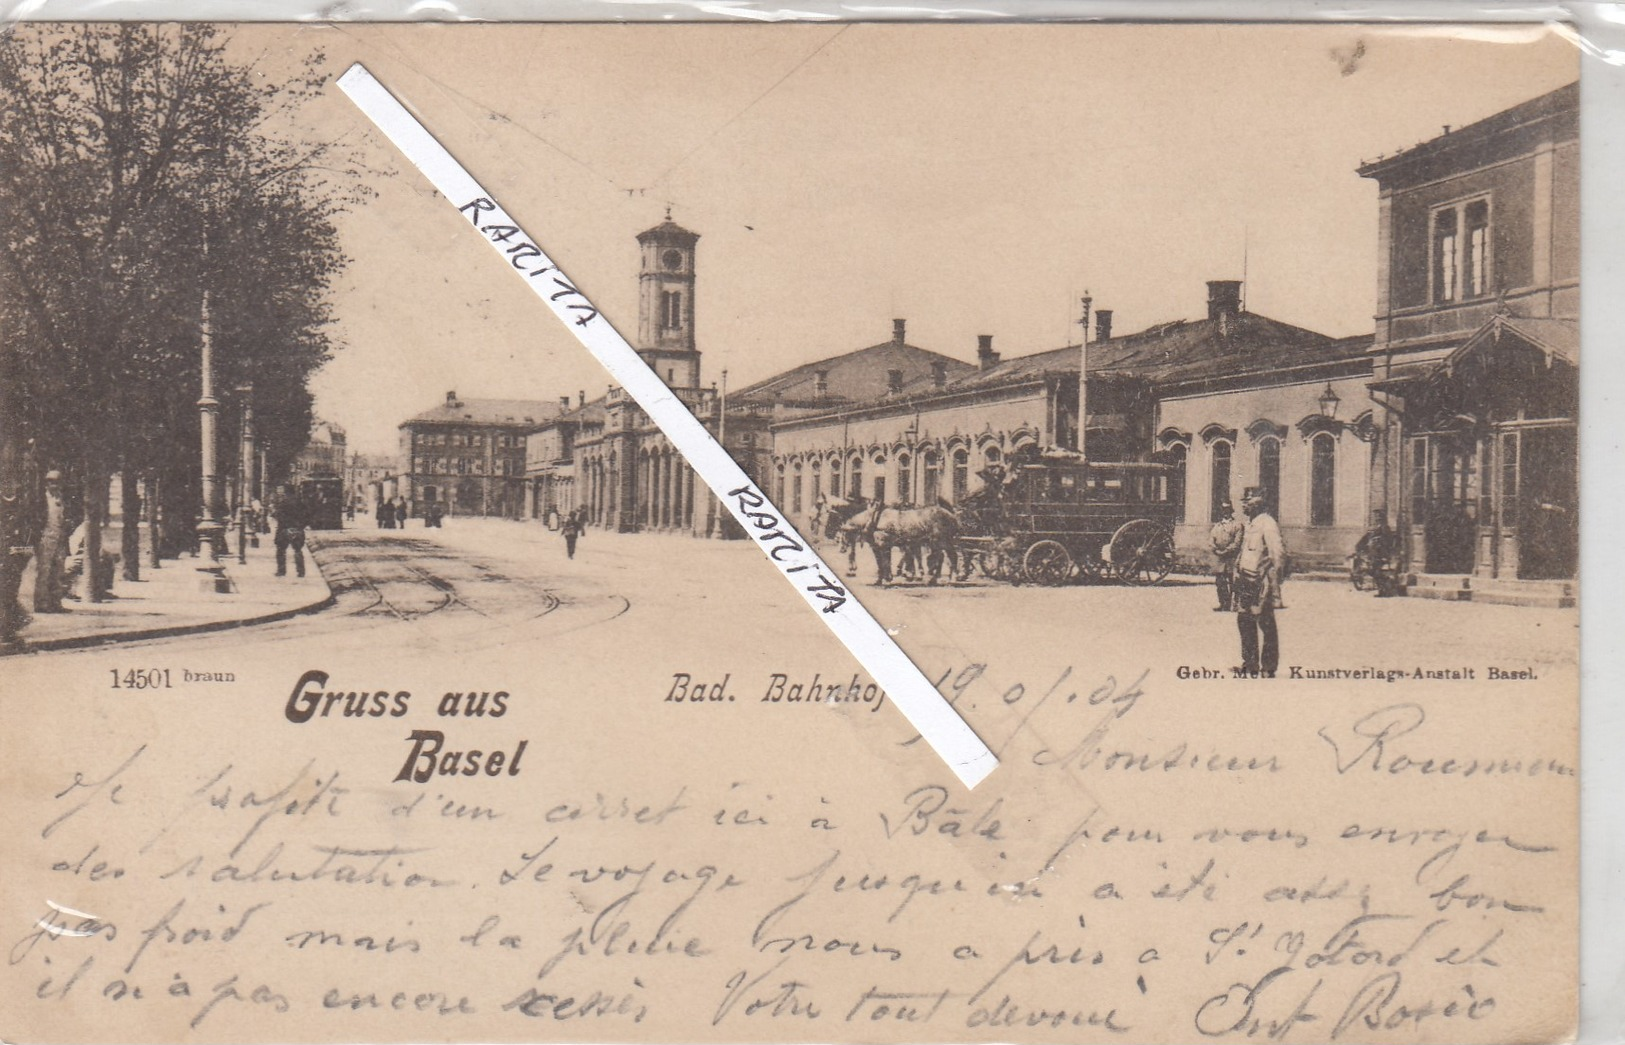 RARITA
RARITA
14501 braun
Gruss aus
Basel
Bad. Bahnhof
Gebr. Metz Kunstverlags-Anstalt Basel.
19. 01. 04
Monsieur
Je profite d'un arret ici à Bâle pour vous envoyer
des salutation. Le voyage jusqu'ici a été assez bon
pas froid mais la pluie nous a pris a St Gotard et
il n'a pas encore Votre tout devoué